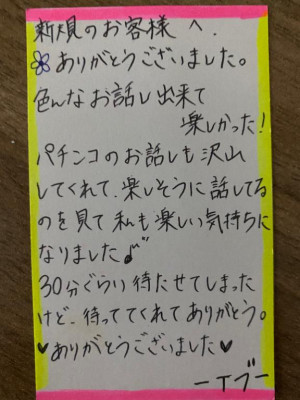 新規のお客様へ.
ありがとうございました。
色んなお話し出来て
楽しかった!
パチンコのお話しも沢山
してくれて、楽しそうに話してる
のを見て私も楽しい気持ちに
なりました♪
30分ぐらい待たせてしまった
けど、待っててくれてありがとう。
♥ありがとうございました♥
ーエブー